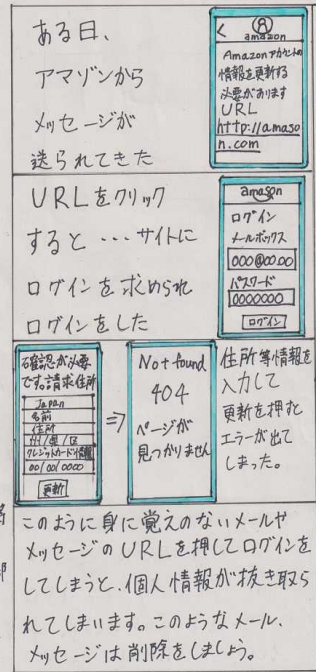 ある日、
アマゾンから
メッセージが
送られてきた
amazon
Amazonアカウントの
情報を更新する
必要があります
URL
http://amaso
n.com
URLをクリック
すると…サイトに
ログインを求められ
ログインをした
amason
ログイン
メールボックス
000@00.00
パスワード
0000000
ログイン
確認が必要
です。請求住所
Japan
名前
住所
州/県/区
クレジットカード情報
00/00/0000
更新
⇒
Not found
404
ページが
見つかりません
住所等情報を
入力して
更新を押すと
エラーが出て
しまった。
このように身に覚えのないメールや
メッセージのURLを押してログインを
してしまうと、個人情報が抜き取ら
れてしまいます。このようなメール、
メッセージは削除をしましょう。